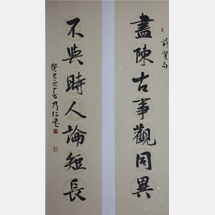 盡陳古事觀同異
不與時人論短長